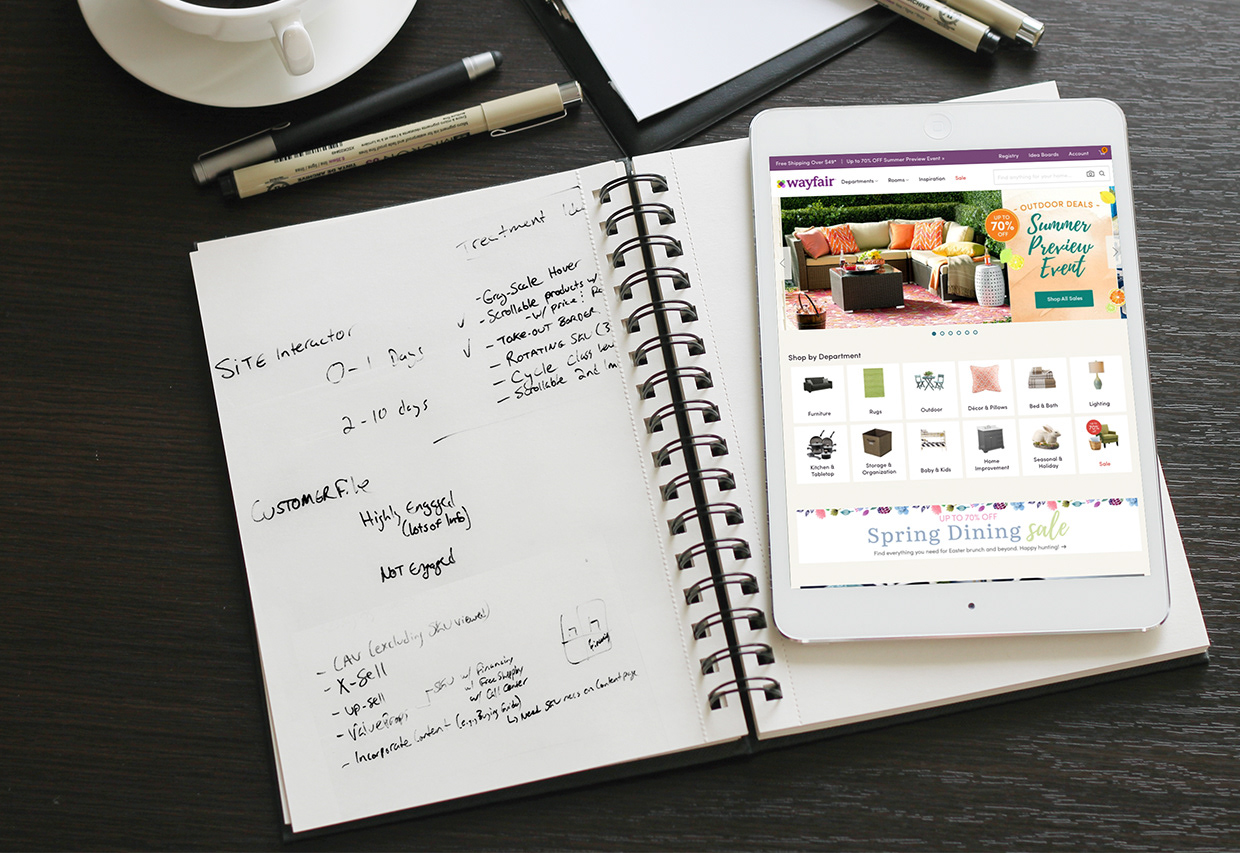 Treatment
- Gray-Scale Hover
- Scrollable products w/
- w/ price:
- Take-out BORDER
- ROTATING SKU (3
- Cycle Class
- Scrollable 2nd
SITE Interactor
0-1 Days
2-10 days
CUSTOMER File
Highly Engaged
(lots of Info)
NOT Engaged
- (excluding SKU viewed)
- X-Sell
- up-sell
- Value Props
- SKU w/ Financing
w/ Free Shipping
w/ Call Center
- Incorporate Content (e.g., Buying Guide)
↳ Need SKU recs on Content page
Free Shipping Over $49* | Up to 70% OFF Summer Preview Event »
Registry Idea Boards Account
wayfair Departments Rooms Inspiration Sale
Find anything for your home...
UP TO
70%
OFF
- OUTDOOR DEALS -
Summer
Preview
Event
Shop All Sales
Shop by Department
Furniture Rugs Outdoor Décor & Pillows Bed & Bath Lighting
Kitchen & Tabletop
Storage & Organization
Baby & Kids
Home Improvement
Seasonal & Holiday
70%
Sale
UP TO 70% OFF
Spring Dining sale
Find everything you need for Easter brunch and beyond. Happy hunting! →